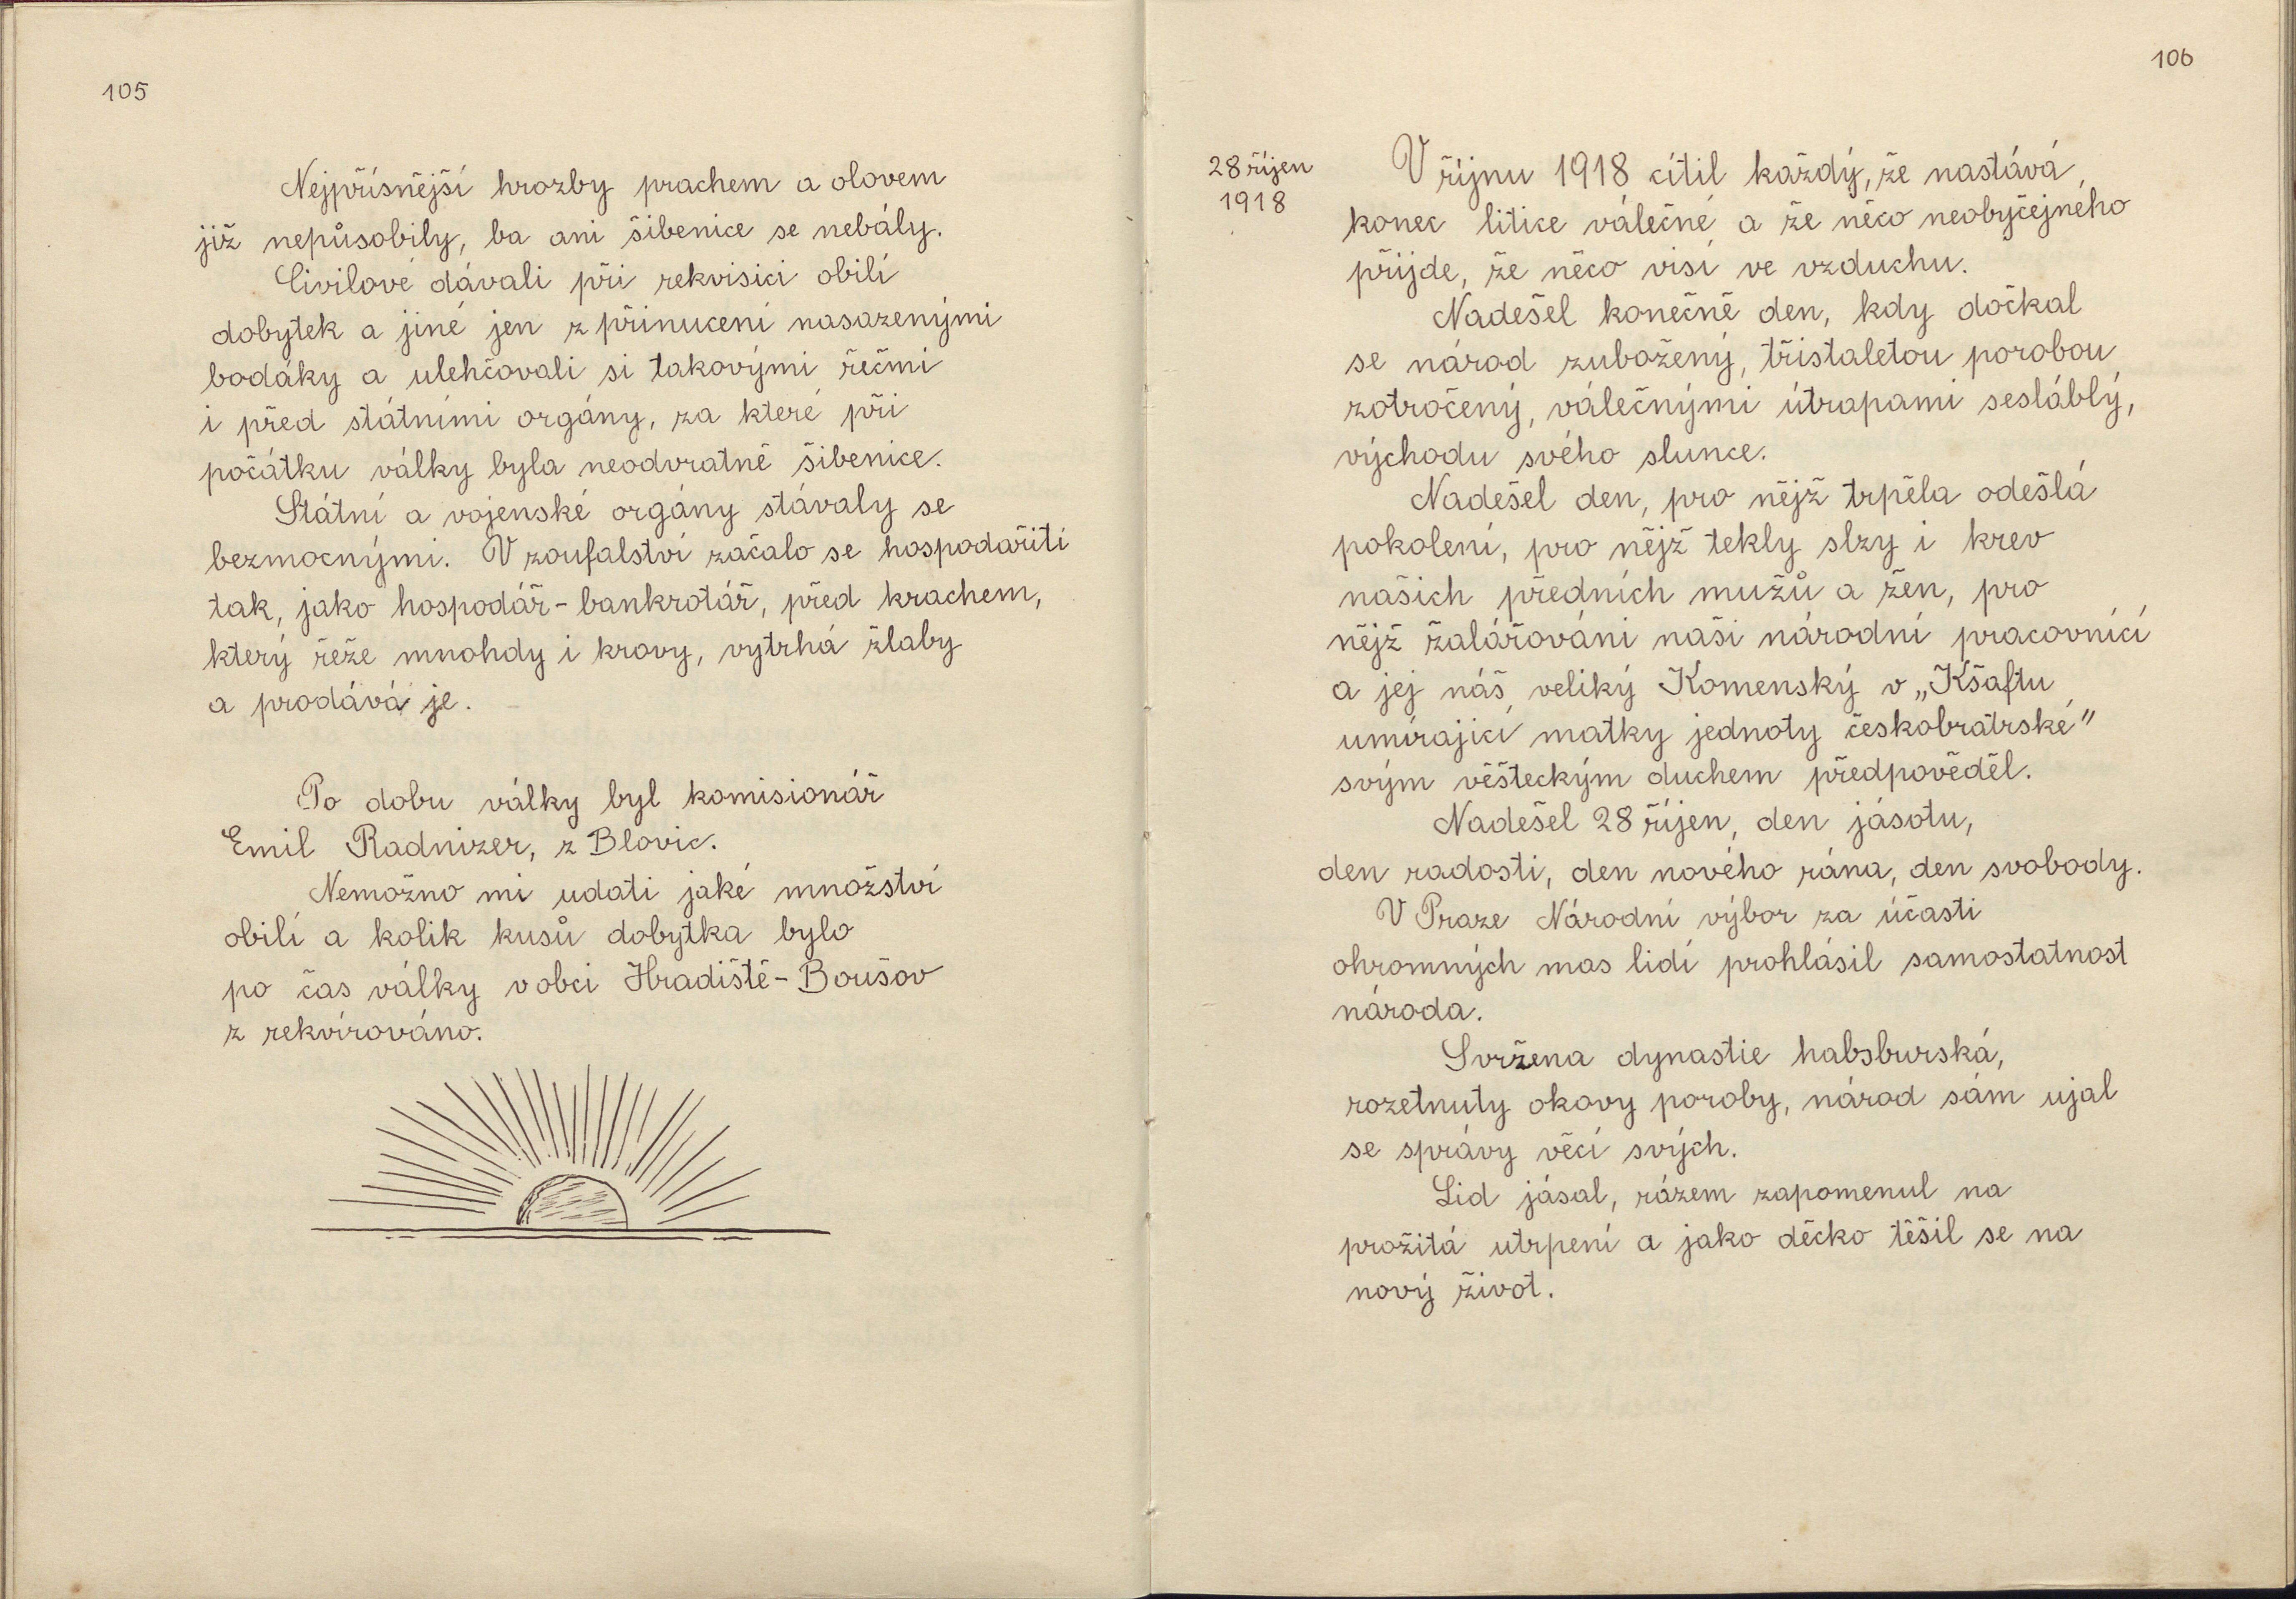 105
Nejpřísnější hrozby prachem a olovem
již nepůsobily, ba ani šibenice se nebály.
Civilové dávali při rekvisici obilí
dobytek a jiné jen z přinucení nasazenými
bodáky a ulehčovali si takovými řečmi
i před státními orgány, za které při
počátku války byla neodvratně šibenice.
Státní a vojenské orgány stávaly se
bezmocnými. V zoufalství začalo se hospodařiti
tak, jako hospodář - bankrotář, před krachem,
který řeže mnohdy i krovy, vytrhá žlaby
a prodává je.
Po dobu války byl komisionář
Emil Radnizer, z Blovic.
Nemožno mi udati jaké množství
obilí a kolik kusů dobytka bylo
po čas války v obci Hradiště - Boušov
z rekvírováno.
106
28 říjen
1918
V říjnu 1918 cítil každý, že nastává
konec litice válečné a že něco neobyčejného
přijde, že něco visí ve vzduchu.
Nadešel konečně den, kdy dočkal
se národ zubožený, třistaletou porobou
zotročený, válečnými útrapami sesláblý,
východu svého slunce.
Nadešel den, pro nějž trpěla odešlá
pokolení, pro nějž tekly slzy i krev
našich předních mužů a žen, pro
nějž žalářováni naši národní pracovníci
a jej náš veliký Komenský v „Kšaftu
umírající matky jednoty českobratrské"
svým věšteckým duchem předpověděl.
Nadešel 28 říjen, den jásotu,
den radosti, den nového rána, den svobody.
V Praze Národní výbor za účasti
ohromných mas lidí prohlásil samostatnost
národa.
Svržena dynastie habsburská,
rozetnuty okovy poroby, národ sám ujal
se správy věcí svých.
Lid jásal, rázem zapomenul na
prožitá utrpení a jako děcko těšil se na
nový život.